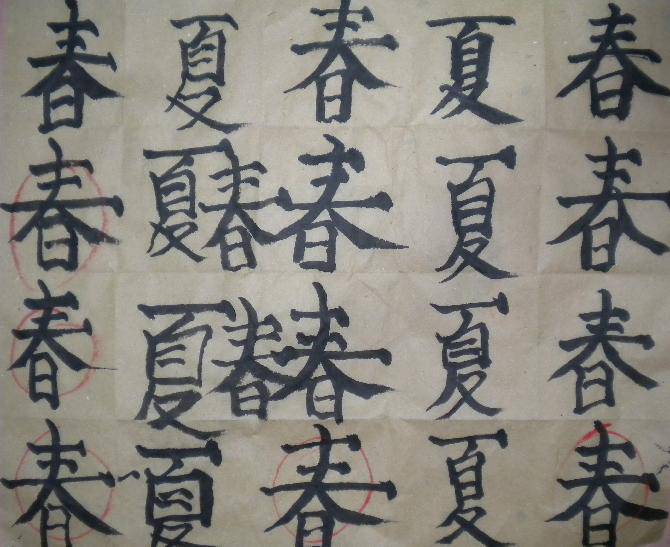 春夏春夏春
春夏春春夏春
春夏春春夏春
春夏春夏春